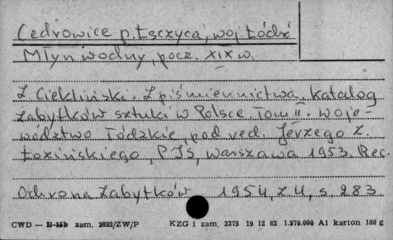 Cedrowice p. Łęczyca, woj. Łódź
Młyn wodny, pocz. XIX w.
Z. Ciekliński. Z piśmiennictwa, katalog
zabytków sztuki w Polsce, Tom II. Woje-
wództwo Łódzkie, pod red. Jerzego Z.
Łozińskiego, PIS, Warszawa 1953. Rec.
Ochrona Zabytków 1954, z 4, s. 283.
CWD — zam. /ZW/P KZG 1 zam. 2375 19 12 62 1.570.000 A1 karton 180 g